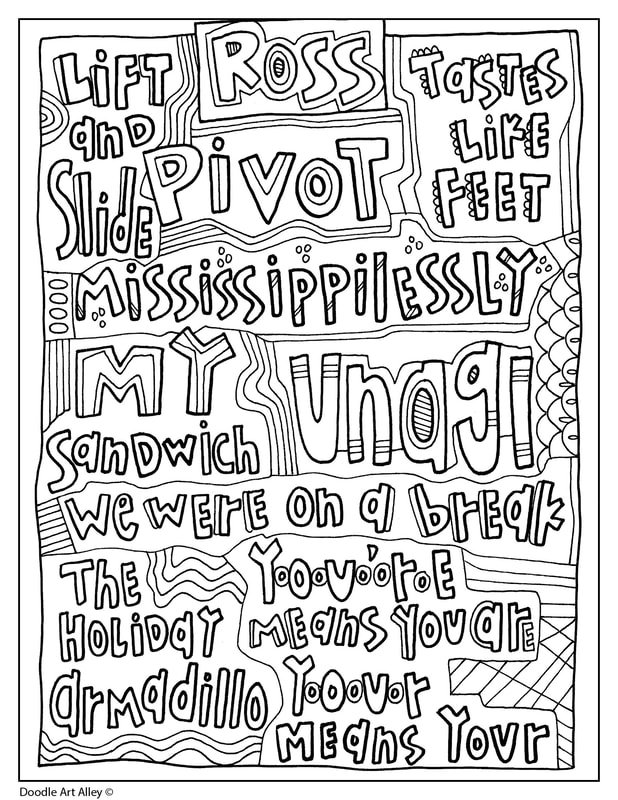 Ross
Lift
and
Slide
Pivot
Tastes
Like
Feet
Mississippilessly
My
Sandwich
Unagi
We were on a break
The
Holiday
armadillo
Yooou'ore
means you are
Yooouor
means Your
Doodle Art Alley ©